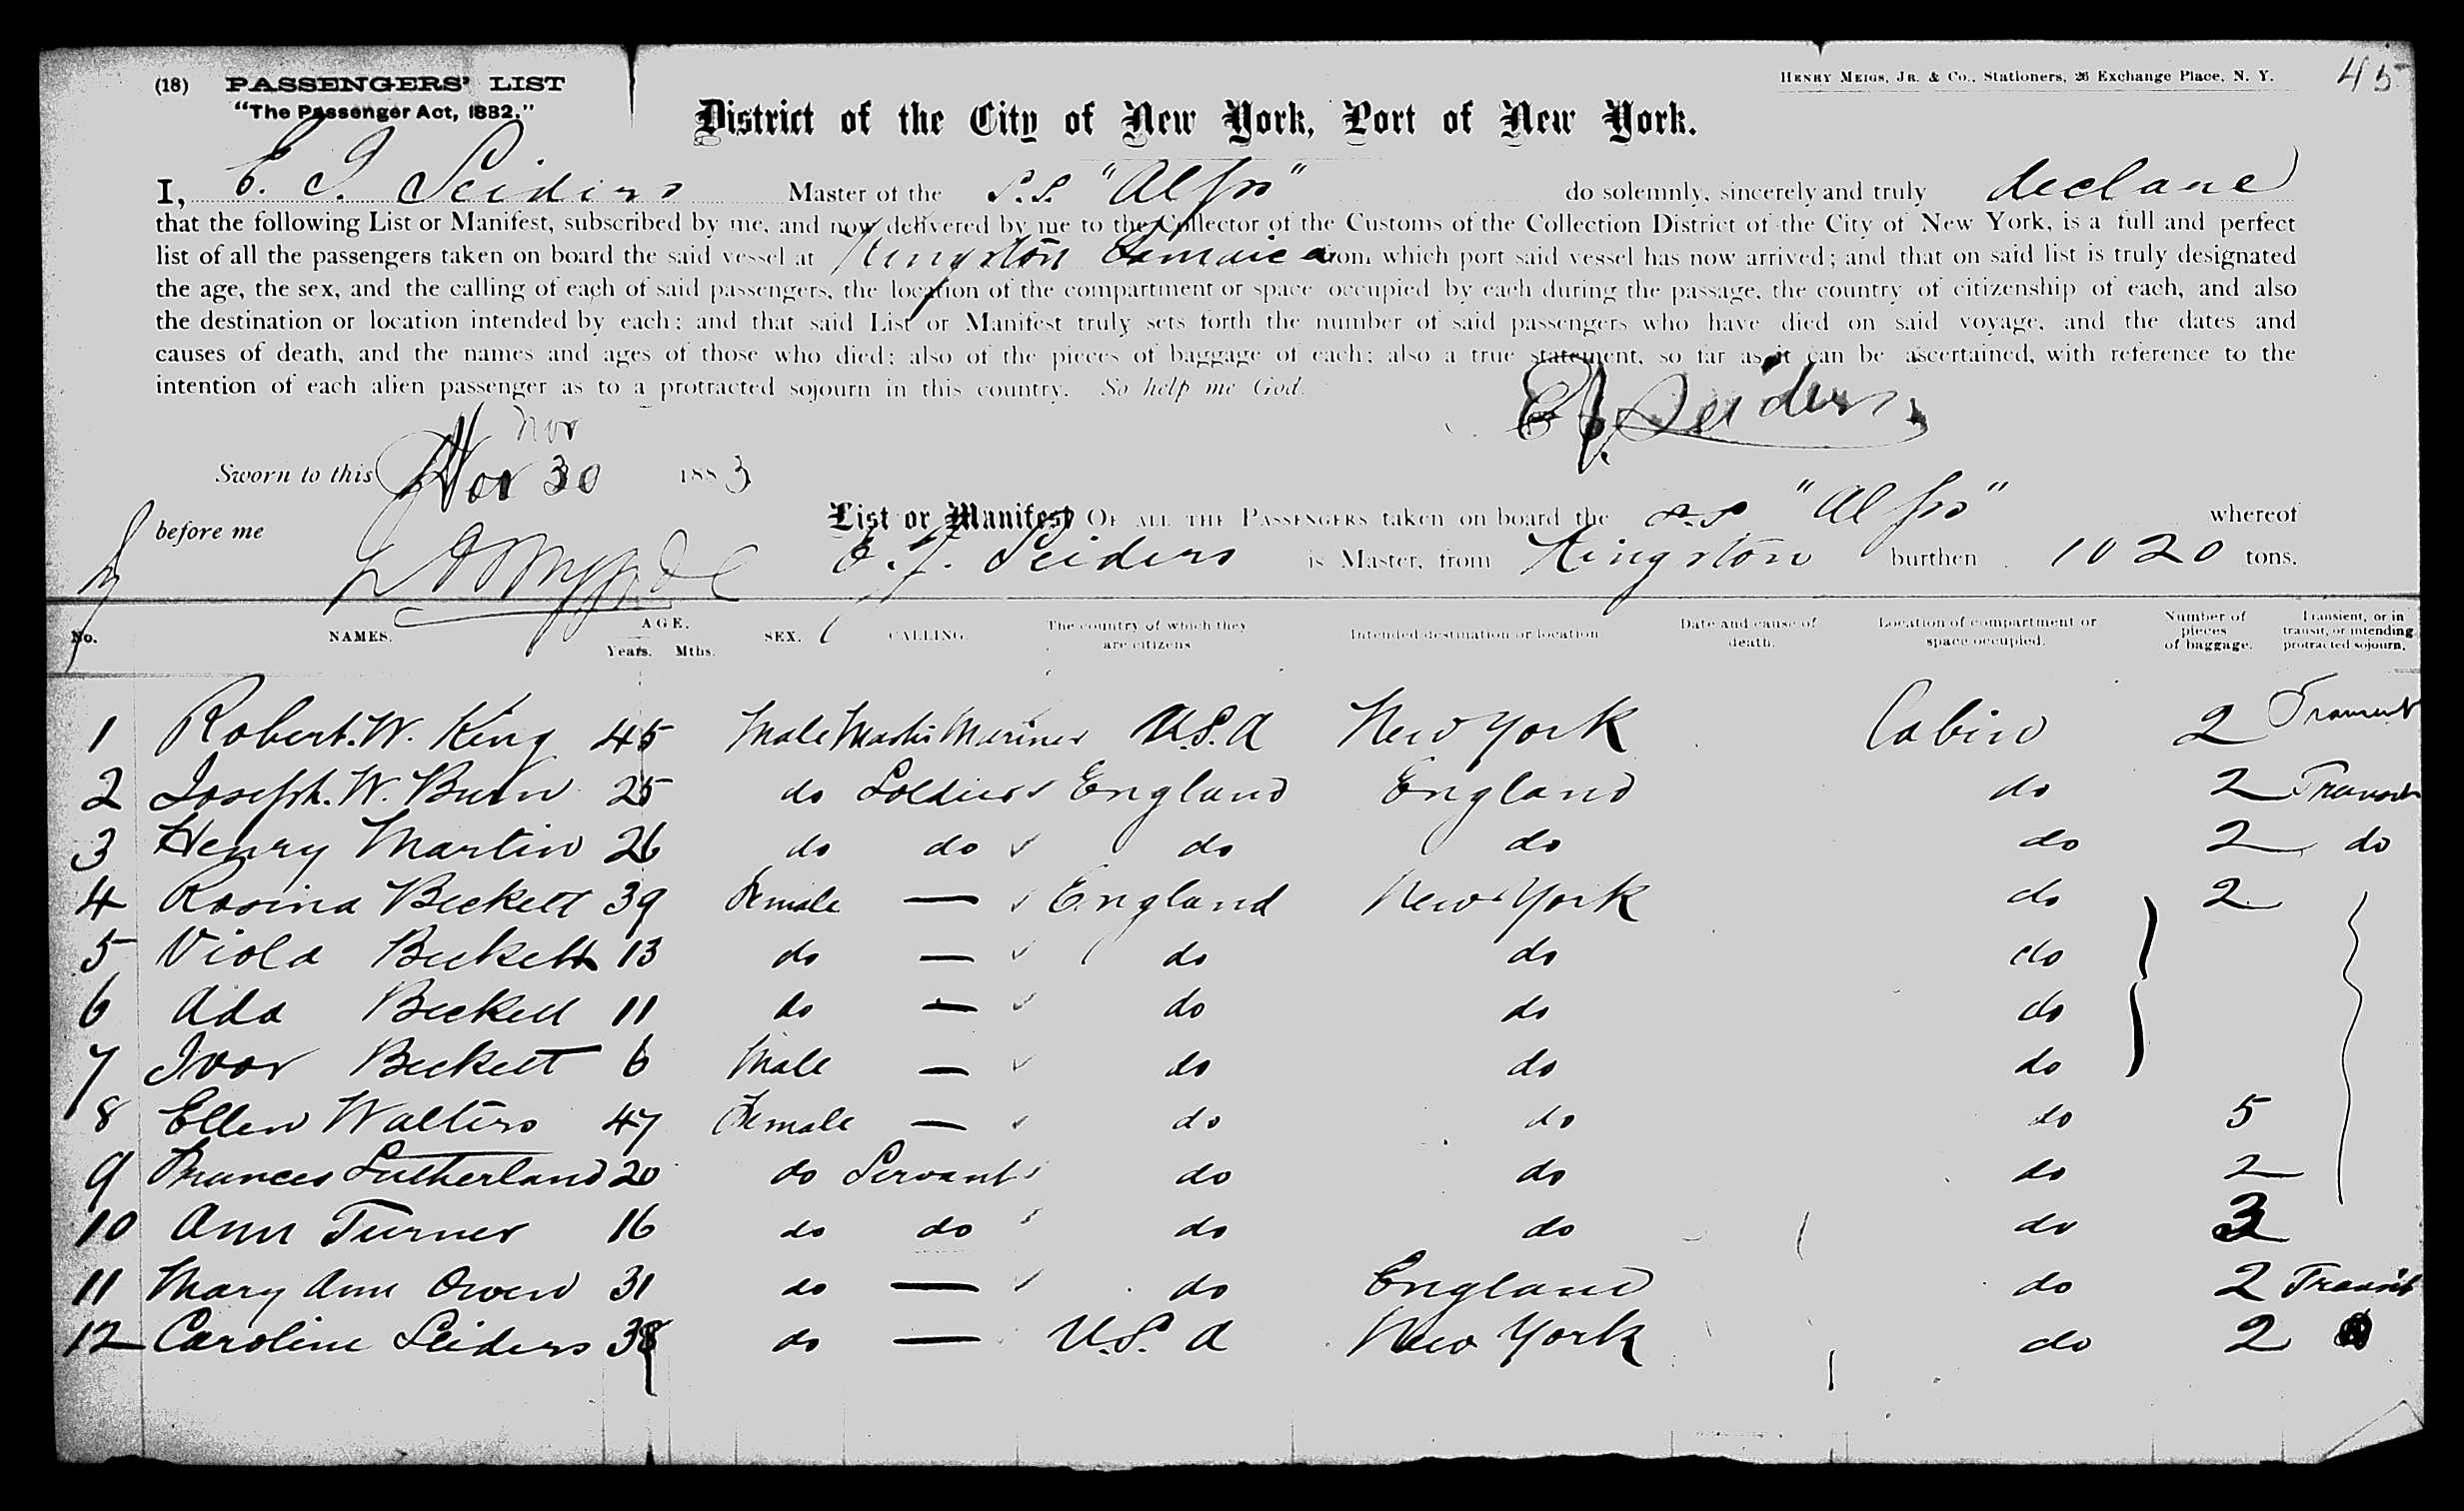 (18) PASSENGERS' LIST
"The Passenger Act, 1882."
HENRY MEIGS, JR. & Co., Stationers, 26 Exchange Place, N. Y.
45
District of the City of New York, Port of New York.
I, E. J. Seiders Master of the S.S. "Alps" do solemnly, sincerely and truly declare
that the following List or Manifest, subscribed by me, and now delivered by me to the Collector of the Customs of the Collection District of the City of New York, is a full and perfect
list of all the passengers taken on board the said vessel at Kingston Jamaica from which port said vessel has now arrived; and that on said list is truly designated
the age, the sex, and the calling of each of said passengers, the location of the compartment or space occupied by each during the passage, the country of citizenship of each, and also
the destination or location intended by each; and that said List or Manifest truly sets forth the number of said passengers who have died on said voyage, and the dates and
causes of death, and the names and ages of those who died; also of the pieces of baggage of each; also a true statement, so far as it can be ascertained, with reference to the
intention of each alien passenger as to a protracted sojourn in this country. So help me God.
E J. Seiders
Nov
Sworn to this Nov 30 1883
before me
List or Manifest OF ALL THE PASSENGERS taken on board the S.S "Alps" whereof
E. J. Seiders is Master, from Kingston burthen 1020 tons.
No. NAMES. AGE. Years. Mths. SEX. CALLING. The country of which they are citizens Intended destination or location Date and cause of death. Location of compartment or space occupied. Number of pieces of baggage. Transient, or in transit, or intending protracted sojourn.
1 Robert. W. King 45 Male Master Mariner U.S.A New York Cabin 2 Transient
2 Joseph. W. 25 do Soldier England England do 2 Transit
3 Henry Martin 26 do do do do do 2 do
4 Rosina Beckett 39 Female — England New York do 2
5 Viola Beckett 13 do — do do do
6 Ada Beckett 11 do — do do do
7 Ivor Beckett 6 Male — do do do
8 Ellen Walters 47 Female — do do do 5
9 Frances Sutherland 20 do Servant do do do 2
10 Ann Turner 16 do do do do do 3
11 Mary Ann Owen 31 do — do England do 2 Transit
12 Caroline Seiders 38 do — U.S. A New York do 2